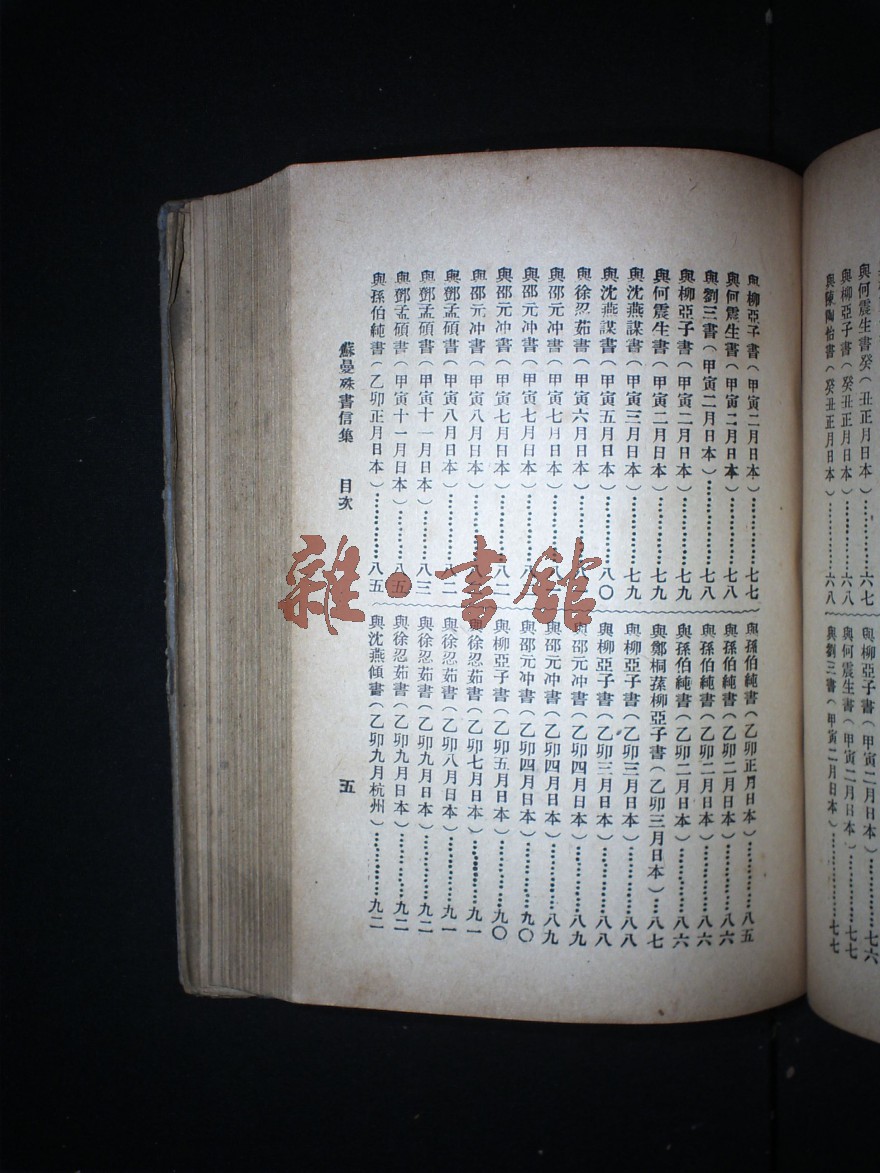 與何震生書癸（丑正月日本）……六七
與柳亞子書（癸丑正月日本）……六八
與陳陶怡書（癸丑正月日本）……六八
與柳亞子書（甲寅二月日本）……七六
與何震生書（甲寅二月日本）……七七
與劉三書（甲寅二月日本）……七七
與柳亞子書（甲寅二月日本）……七七
與何震生書（甲寅二月日本）……七八
與劉三書（甲寅二月日本）……七八
與柳亞子書（甲寅二月日本）……七九
與何震生書（甲寅二月日本）……七九
與沈燕謀書（甲寅三月日本）……七九
與沈燕謀書（甲寅五月日本）……八〇
與徐忍茹書（甲寅六月日本）……八
與邵元冲書（甲寅七月日本）……八
與邵元冲書（甲寅七月日本）……八
與邵元冲書（甲寅七月日本）……八
與邵元冲書（甲寅八月日本）……八
與鄧孟碩書（甲寅八月日本）……八二
與鄧孟碩書（甲寅十一月日本）……八三
與鄧孟碩書（甲寅十一月日本）……八五
與孫伯純書（乙卯正月日本）……八五
與孫伯純書（乙卯正月日本）……八五
與孫伯純書（乙卯二月日本）……八六
與孫伯純書（乙卯二月日本）……八六
與孫伯純書（乙卯二月日本）……八六
與鄭桐蓀柳亞子書（乙卯三月日本）…八七
與柳亞子書（乙卯三月日本）……八八
與柳亞子書（乙卯三月日本）……八八
與邵元冲書（乙卯四月日本）……八九
與邵元冲書（乙卯四月日本）……八九
與邵元冲書（乙卯四月日本）……九〇
與柳亞子書（乙卯五月日本）……九〇
與徐忍茹書（乙卯七月日本）……九一
與徐忍茹書（乙卯八月日本）……九一
與徐忍茹書（乙卯九月日本）……九二
與徐忍茹書（乙卯九月日本）……九二
與沈燕傾書（乙卯九月杭州）……九二
蘇曼殊書信集 目次 五
雜·書館